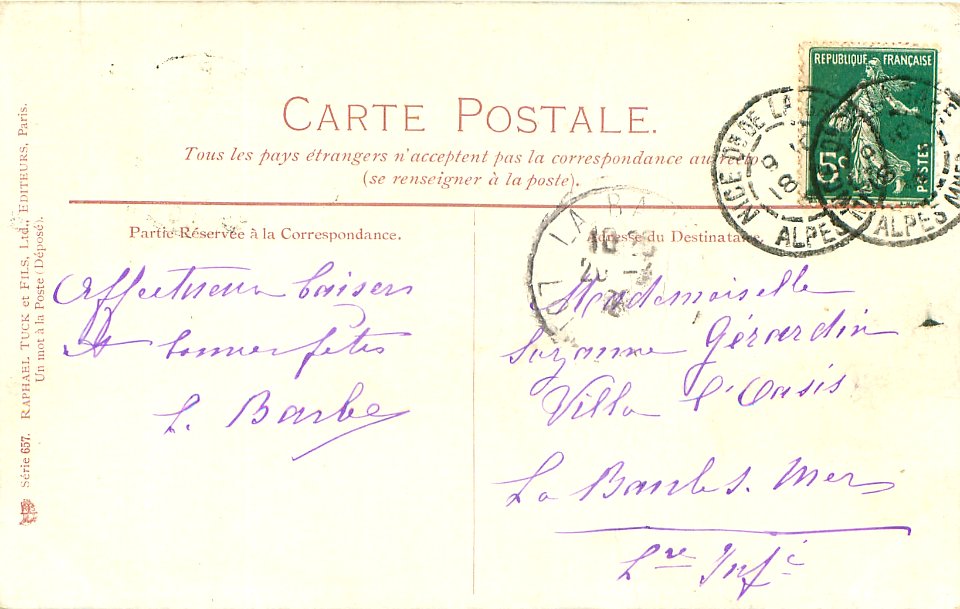 CARTE POSTALE.
Tous les pays étrangers n'acceptent pas la correspondance au recto
(se renseigner à la poste).
REPUBLIQUE FRANÇAISE
5c
POSTES
NICE
ALPES
ALPES MMES
LA BA
Partie Réservée à la Correspondance.
Affectueux baisers
et bonnes fêtes
L. Barbe
Adresse du Destinataire
Mademoiselle
Suzanne Gérardin
Villa l'Oasis
La Baule s. Mer
Lre Infe
Série 657. RAPHAEL TUCK et FILS, Ltd., EDITEURS, Paris.
Un mot à la Poste (Déposé).